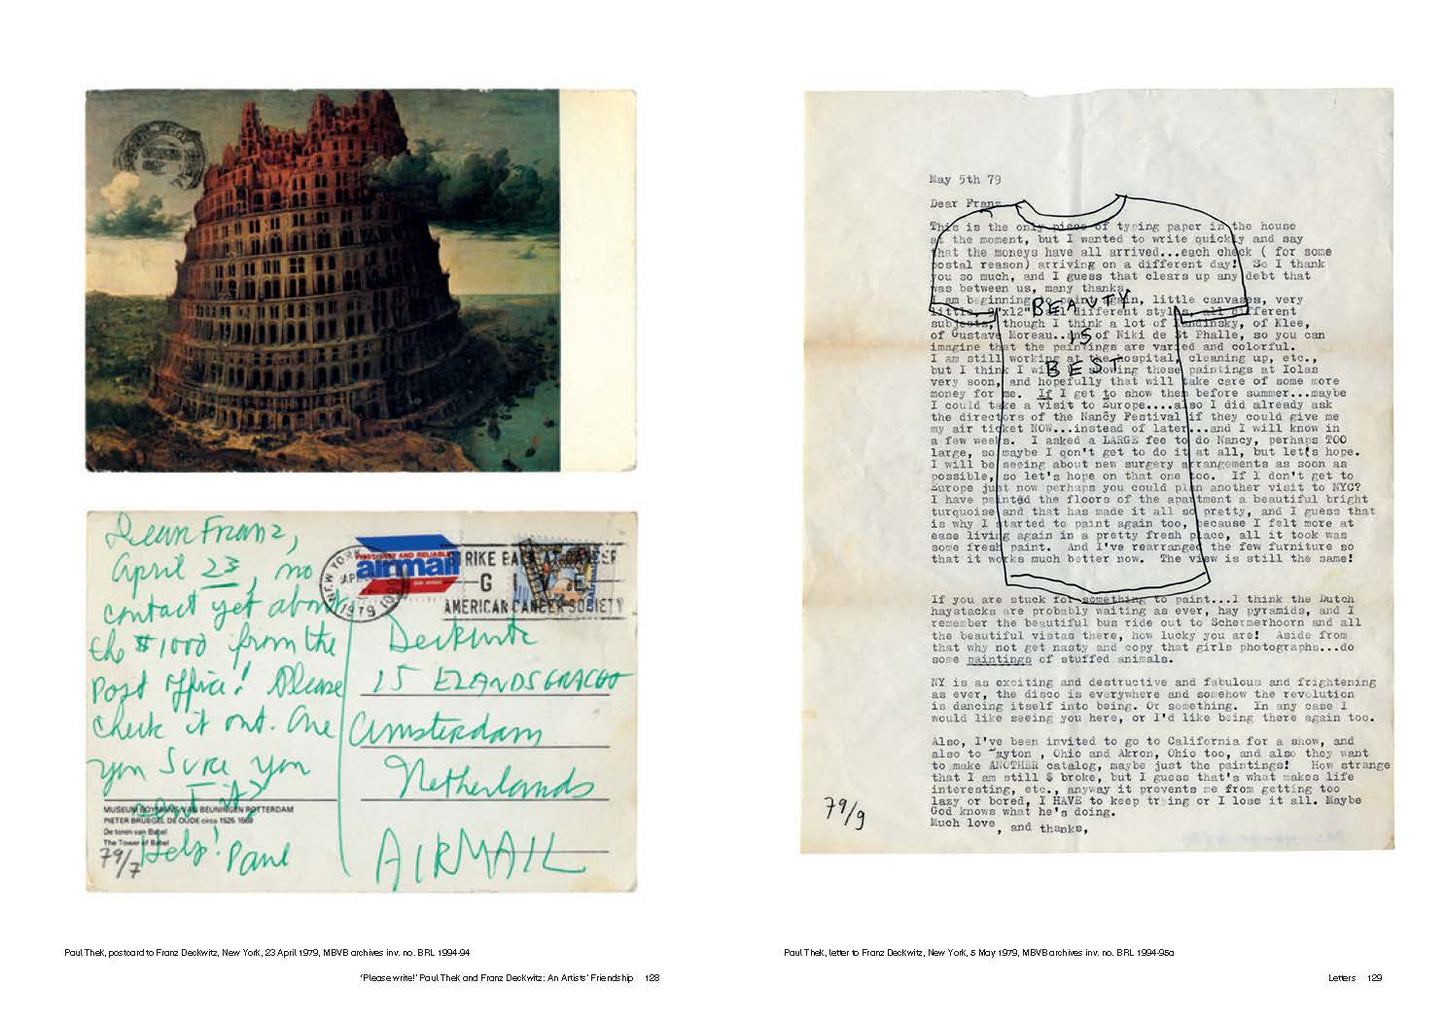 Dear Franz,
April 23, no
contact yet about
the $1000 from the
Post office! Please
check it out. Are
you sure you
sent it?
Help! Paul
79/7
MUSEUM BOYMANS-VAN BEUNINGEN ROTTERDAM
PIETER BRUEGEL DE OUDE circa 1525-1569
De toren van Babel
The Tower of Babel
NEW YORK
1979
AND RELIABLE
airmail
STRIKE BACK AT CANCER
GIVE
AMERICAN CANCER SOCIETY
Deckwitz
15 ELANDSGRACHT
Amsterdam
Netherlands
AIRMAIL
Paul Thek, postcard to Franz Deckwitz, New York, 23 April 1979, MBVB archives inv. no. BRL 1994-94
'Please write!' Paul Thek and Franz Deckwitz: An Artists' Friendship 128
May 5th 79
Dear Franz
This is the only piece of typing paper in the house
at the moment, but I wanted to write quickly and say
that the moneys have all arrived...each check ( for some
postal reason) arriving on a different day! So I thank
you so much, and I guess that clears up any debt that
was between us, many thanks.
I am beginning to paint again, little canvases, very
little, 9"x12" all different styles, all different
subjects, though I think a lot of Kandinsky, of Klee,
of Gustave Moreau..and of Niki de St Phalle, so you can
imagine that the paintings are varied and colorful.
I am still working at the hospital, cleaning up, etc.,
but I think I will be showing these paintings at Iolas
very soon, and hopefully that will take care of some more
money for me. If I get to show them before summer...maybe
I could take a visit to Europe....also I did already ask
the directors of the Nancy Festival if they could give me
my air ticket NOW...instead of later...and I will know in
a few weeks. I asked a LARGE fee to do Nancy, perhaps TOO
large, so maybe I don't get to do it at all, but let's hope.
I will be seeing about new surgery arrangements as soon as
possible, so let's hope on that one too. If I don't get to
Europe just now perhaps you could plan another visit to NYC?
I have painted the floors of the apartment a beautiful bright
turquoise and that has made it all so pretty, and I guess that
is why I started to paint again too, because I felt more at
ease living again in a pretty fresh place, all it took was
some fresh paint. And I've rearranged the few furniture so
that it works much better now. The view is still the same!
BEAUTY
IS
BEST
If you are stuck for something to paint...I think the Dutch
haystacks are probably waiting as ever, hay pyramids, and I
remember the beautiful bus ride out to Schermerhoorn and all
the beautiful vistas there, how lucky you are! Aside from
that why not get nasty and copy that girls photographs...do
some paintings of stuffed animals.
NY is as exciting and destructive and fabulous and frightening
as ever, the disco is everywhere and somehow the revolution
is dancing itself into being. Or something. In any case I
would like seeing you here, or I'd like being there again too.
Also, I've been invited to go to California for a show, and
also to Dayton , Ohio and Akron, Ohio too, and also they want
to make ANOTHER catalog, maybe just the paintings! How strange
that I am still $ broke, but I guess that's what makes life
interesting, etc., anyway it prevents me from getting too
lazy or bored, I HAVE to keep trying or I lose it all. Maybe
God knows what he's doing.
Much love, and thanks,
79/9
Paul Thek, letter to Franz Deckwitz, New York, 5 May 1979, MBVB archives inv. no. BRL 1994-95a
Letters 129